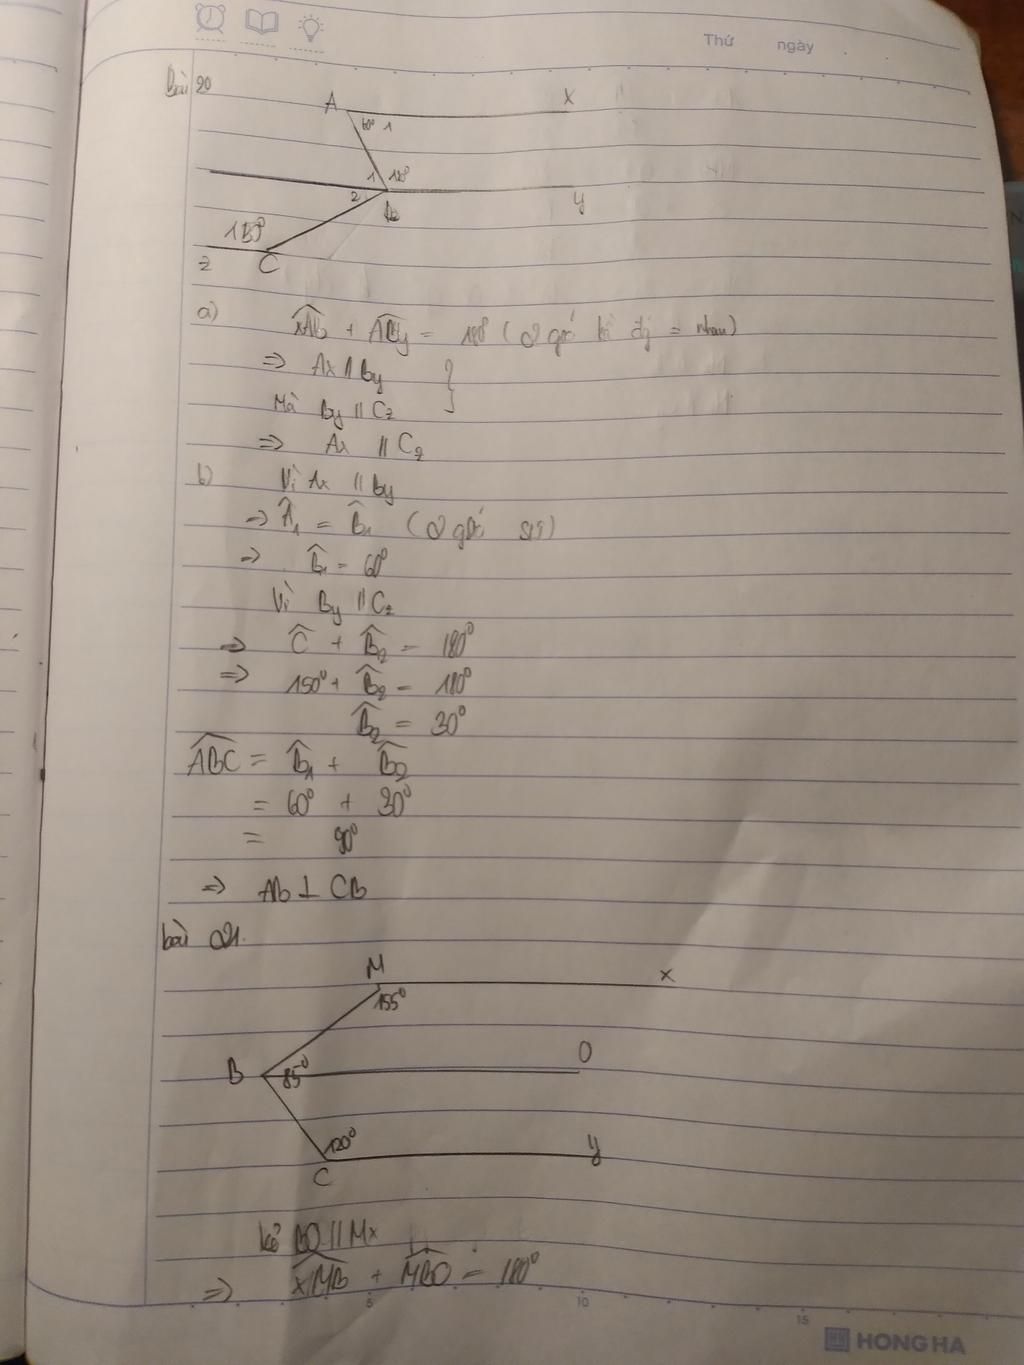 Thứ ngày
Bài 20
A x
60° 1
1 120°
2 B y
150°
z C
a) xAB + ABy = 180° (2 góc kề = nhau)
=> Ax // By }
Mà By // Cz
=> Ax // Cz
b) Vì Ax // By
=> A₁ = B₁ (2 góc slt)
=> B₁ = 60°
Vì By // Cz
=> C + B₂ = 180°
=> 150° + B₂ = 180°
B₂ = 30°
ABC = B₁ + B₂
= 60° + 30°
= 90°
=> AB ⊥ CB
bài 21.
M x
155°
B 85° O
120°
C y
kẻ BO // Mx
=> xMB + MBO = 180°
5 10 15
HONG HA